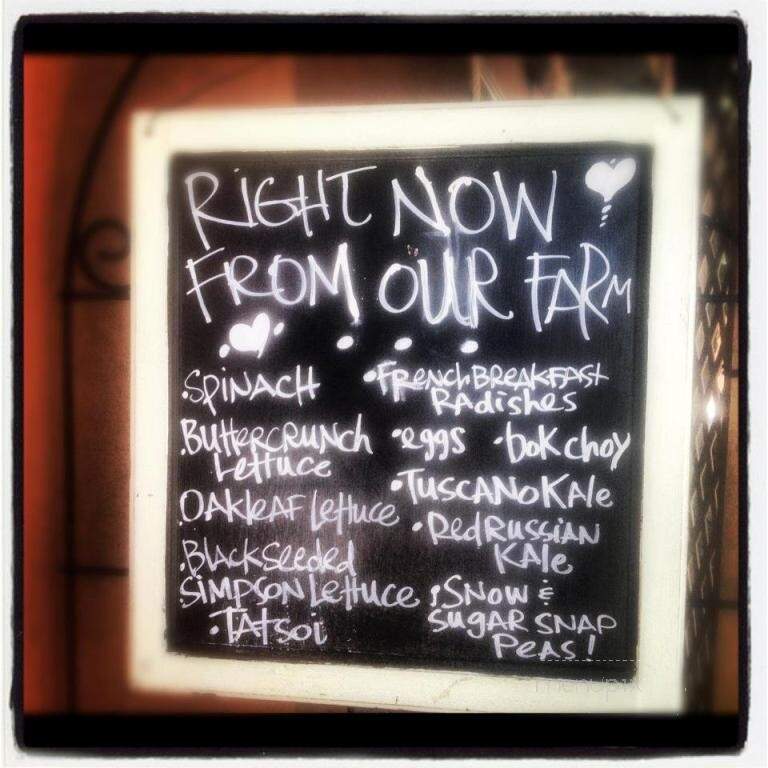 RIGHT NOW
FROM OUR FARM
•SPINACH
•BUTTERCRUNCH
LETTUCE
•OAKLEAF LETTUCE
•BLACKSEEDED
SIMPSON LETTUCE
•TATSOI
•FRENCH BREAKFAST
RADISHES
•eggs •bOK choy
•TUSCANO KALE
•Red RUSSIAN
KALE
•SNOW &
SUGAR SNAP
PEAS!
menupix